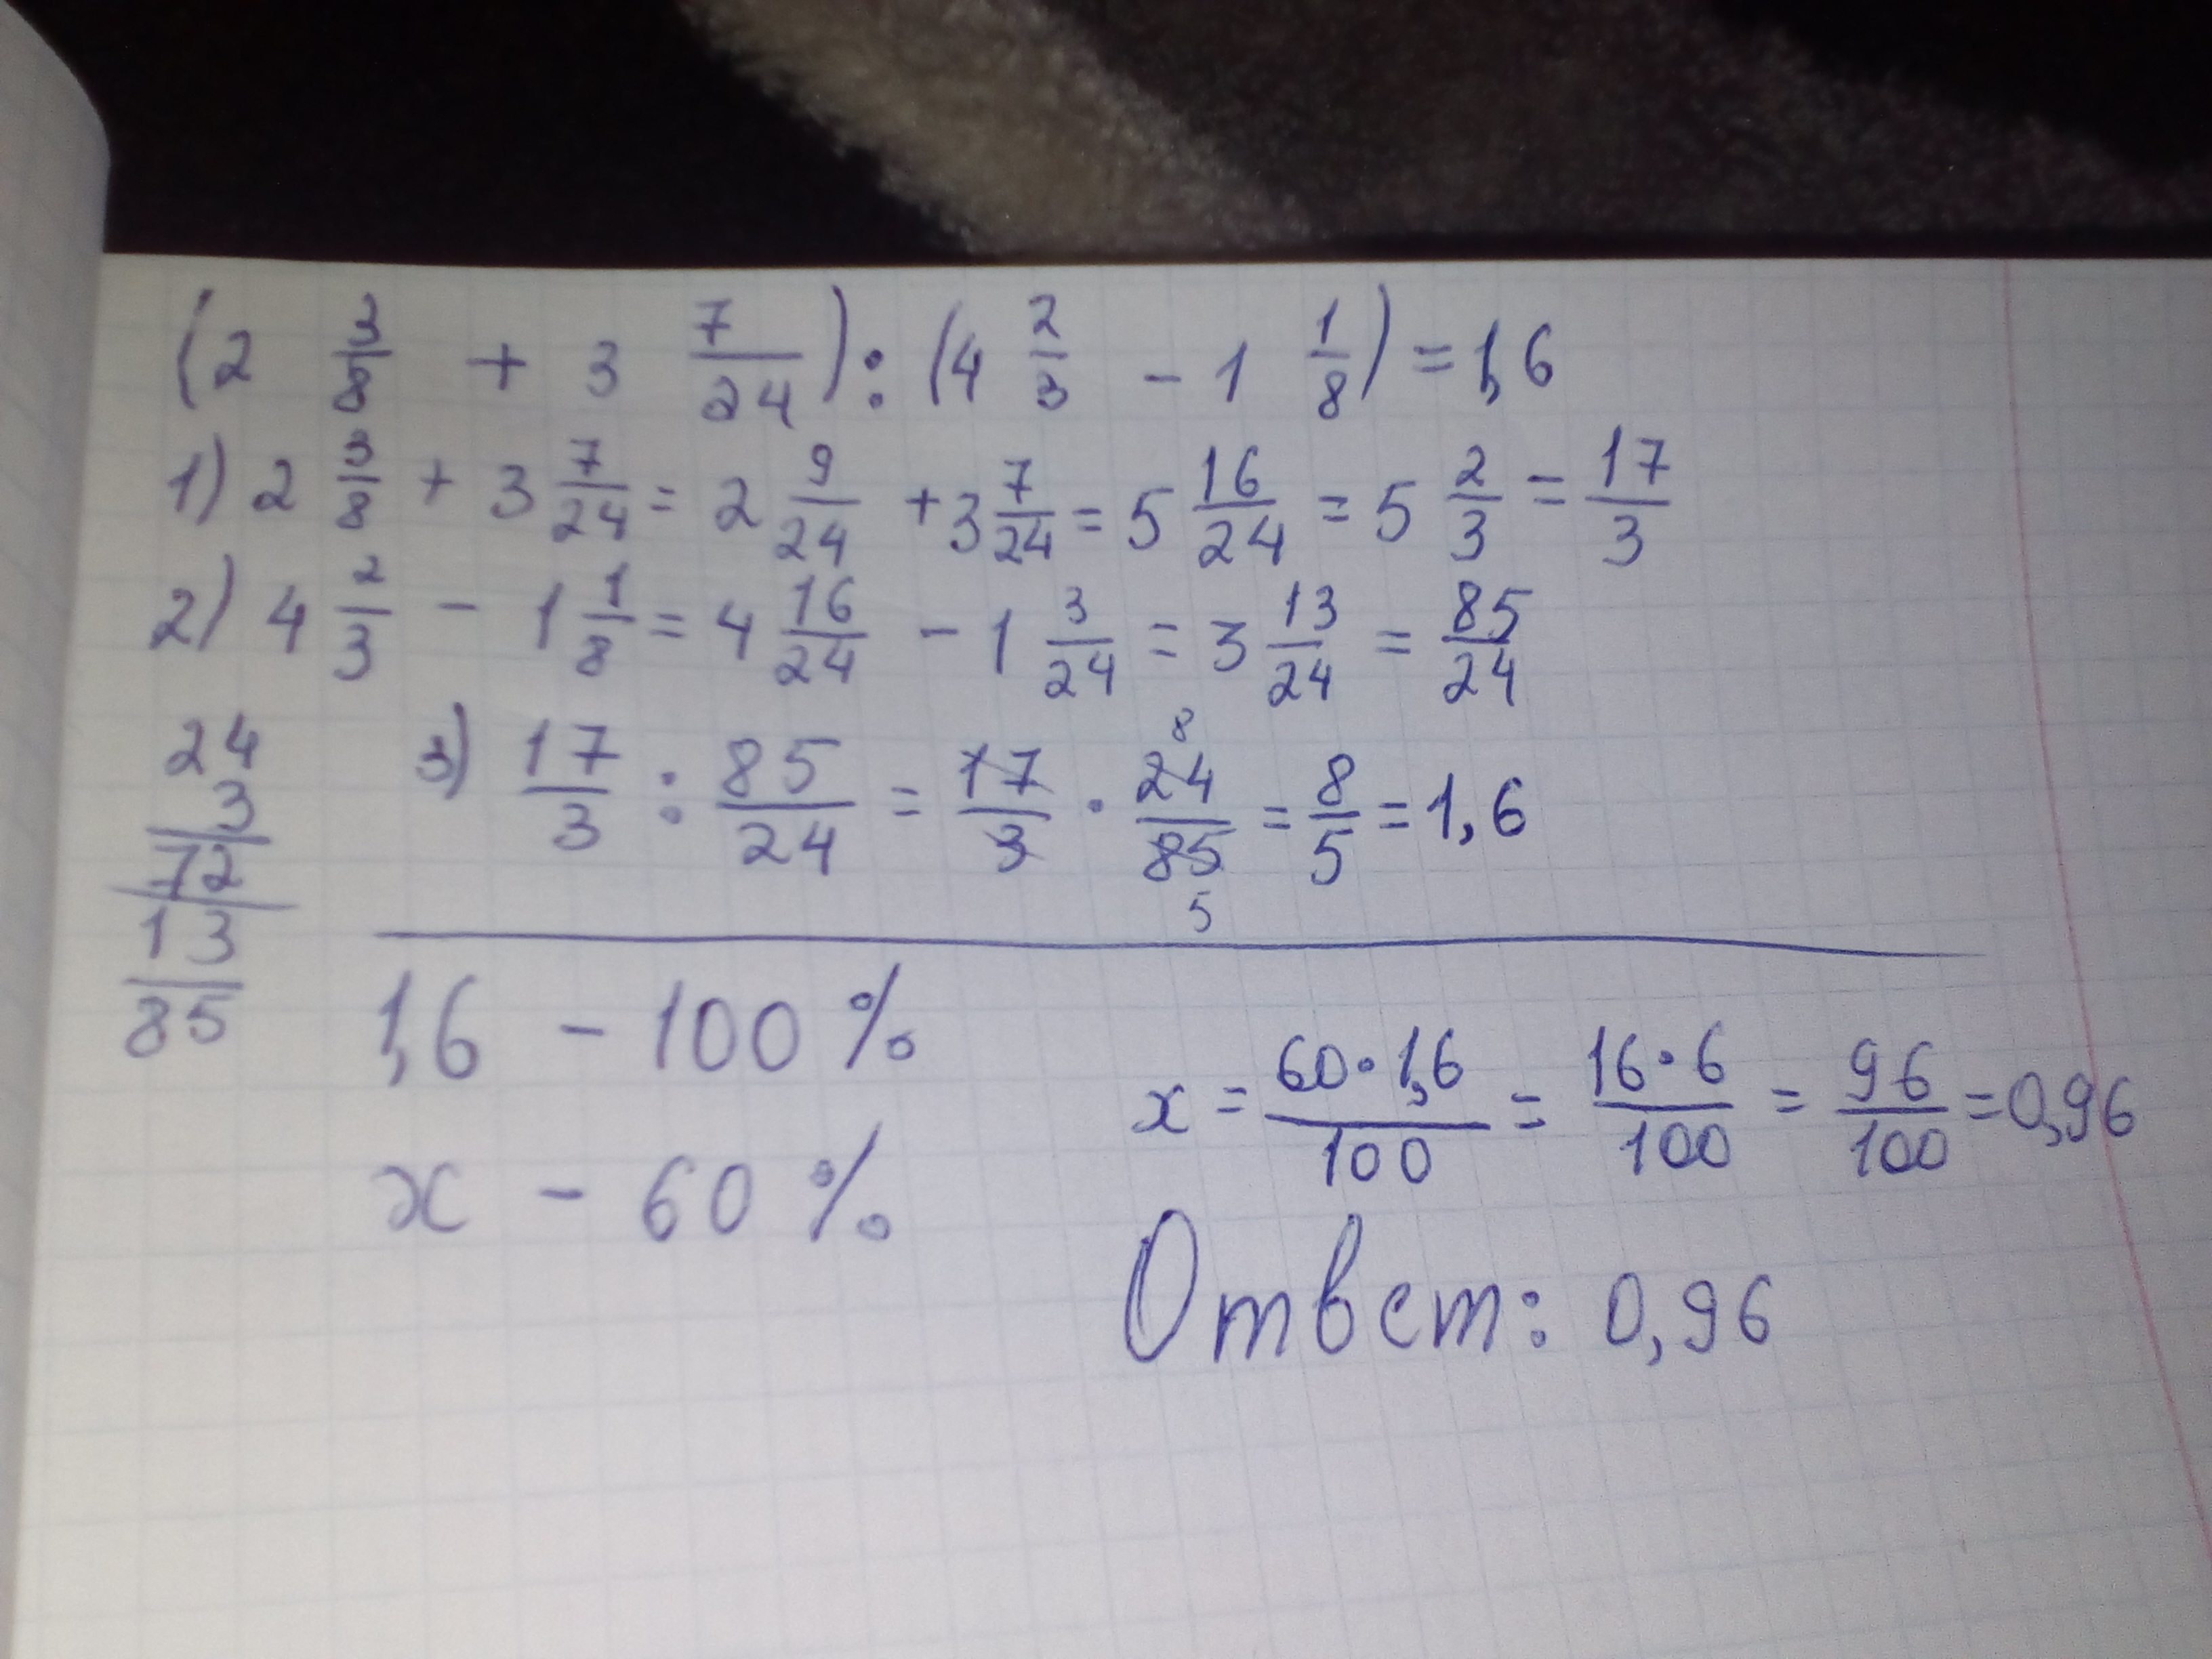 (2 3/8 + 3 7/24) : (4 2/3 - 1 1/8) = 1,6
1) 2 3/8 + 3 7/24 = 2 9/24 + 3 7/24 = 5 16/24 = 5 2/3 = 17/3
2) 4 2/3 - 1 1/8 = 4 16/24 - 1 3/24 = 3 13/24 = 85/24
24
3
72
13
85
3) 17/3 : 85/24 = 17/3 · 24/85 = 8/5 = 1,6
8
5
1,6 - 100 %
x - 60 %
x = 60·1,6/100 = 16·6/100 = 96/100 = 0,96
Ответ: 0,96